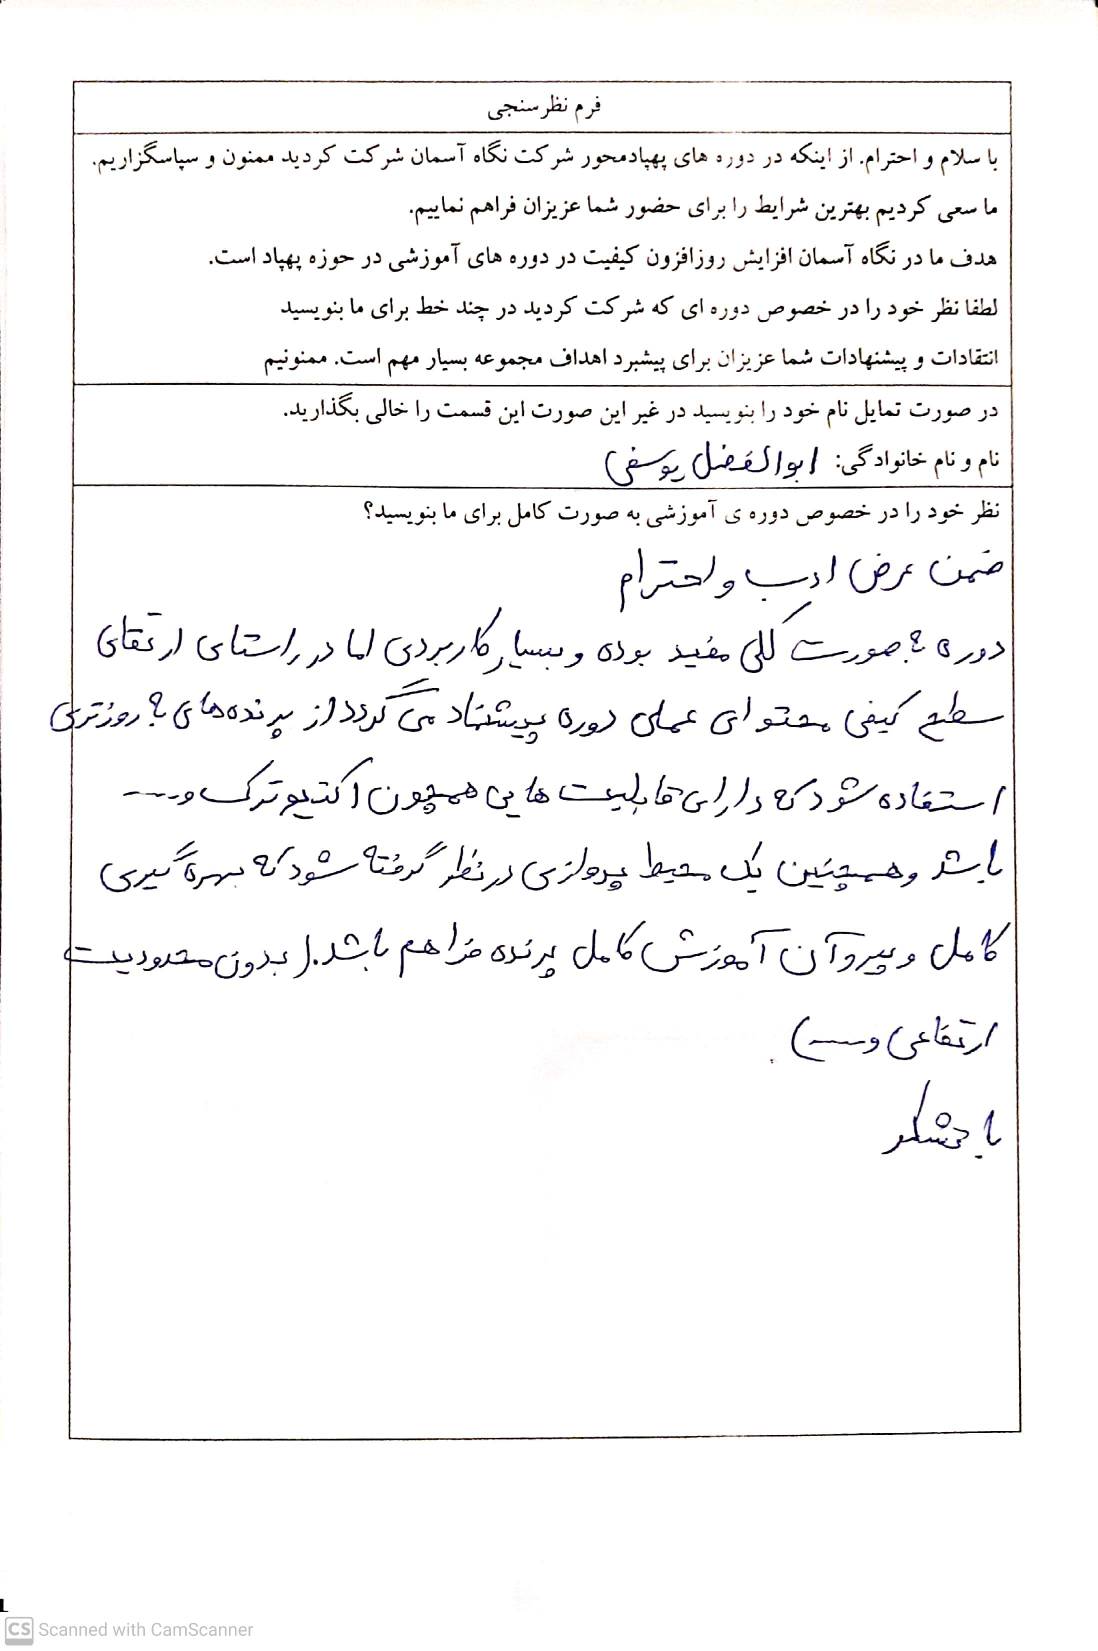 فرم نظرسنجی
با سلام و احترام. از اینکه در دوره های پهپادمحور شرکت نگاه آسمان شرکت کردید ممنون و سپاسگزاریم.
ما سعی کردیم بهترین شرایط را برای حضور شما عزیزان فراهم نماییم.
هدف ما در نگاه آسمان افزایش روزافزون کیفیت در دوره های آموزشی در حوزه پهپاد است.
لطفا نظر خود را در خصوص دوره ای که شرکت کردید در چند خط برای ما بنویسید
انتقادات و پیشنهادات شما عزیزان برای پیشبرد اهداف مجموعه بسیار مهم است. ممنونیم
در صورت تمایل نام خود را بنویسید در غیر این صورت این قسمت را خالی بگذارید.
نام و نام خانوادگی: ابوالفضل یوسفی
نظر خود را در خصوص دوره ی آموزشی به صورت کامل برای ما بنویسید؟
ضمن عرض ادب و احترام
دوره به صورت کلی مفید بوده و بسیار کاربردی اما در راستای ارتقای
سطح کیفی محتوای عملی دوره پیشنهاد می گردد از پرنده های به روزتری
استفاده شود که دارای قابلیت هایی همچون اکتیو ترک و....
باشد و همچنین یک محیط پروازی در نظر گرفته شود که بهره گیری
کامل و پیرو آن آموزش کامل پرنده فراهم باشد. (بدون محدودیت
ارتفاعی و....)
با تشکر
1
CS Scanned with CamScanner